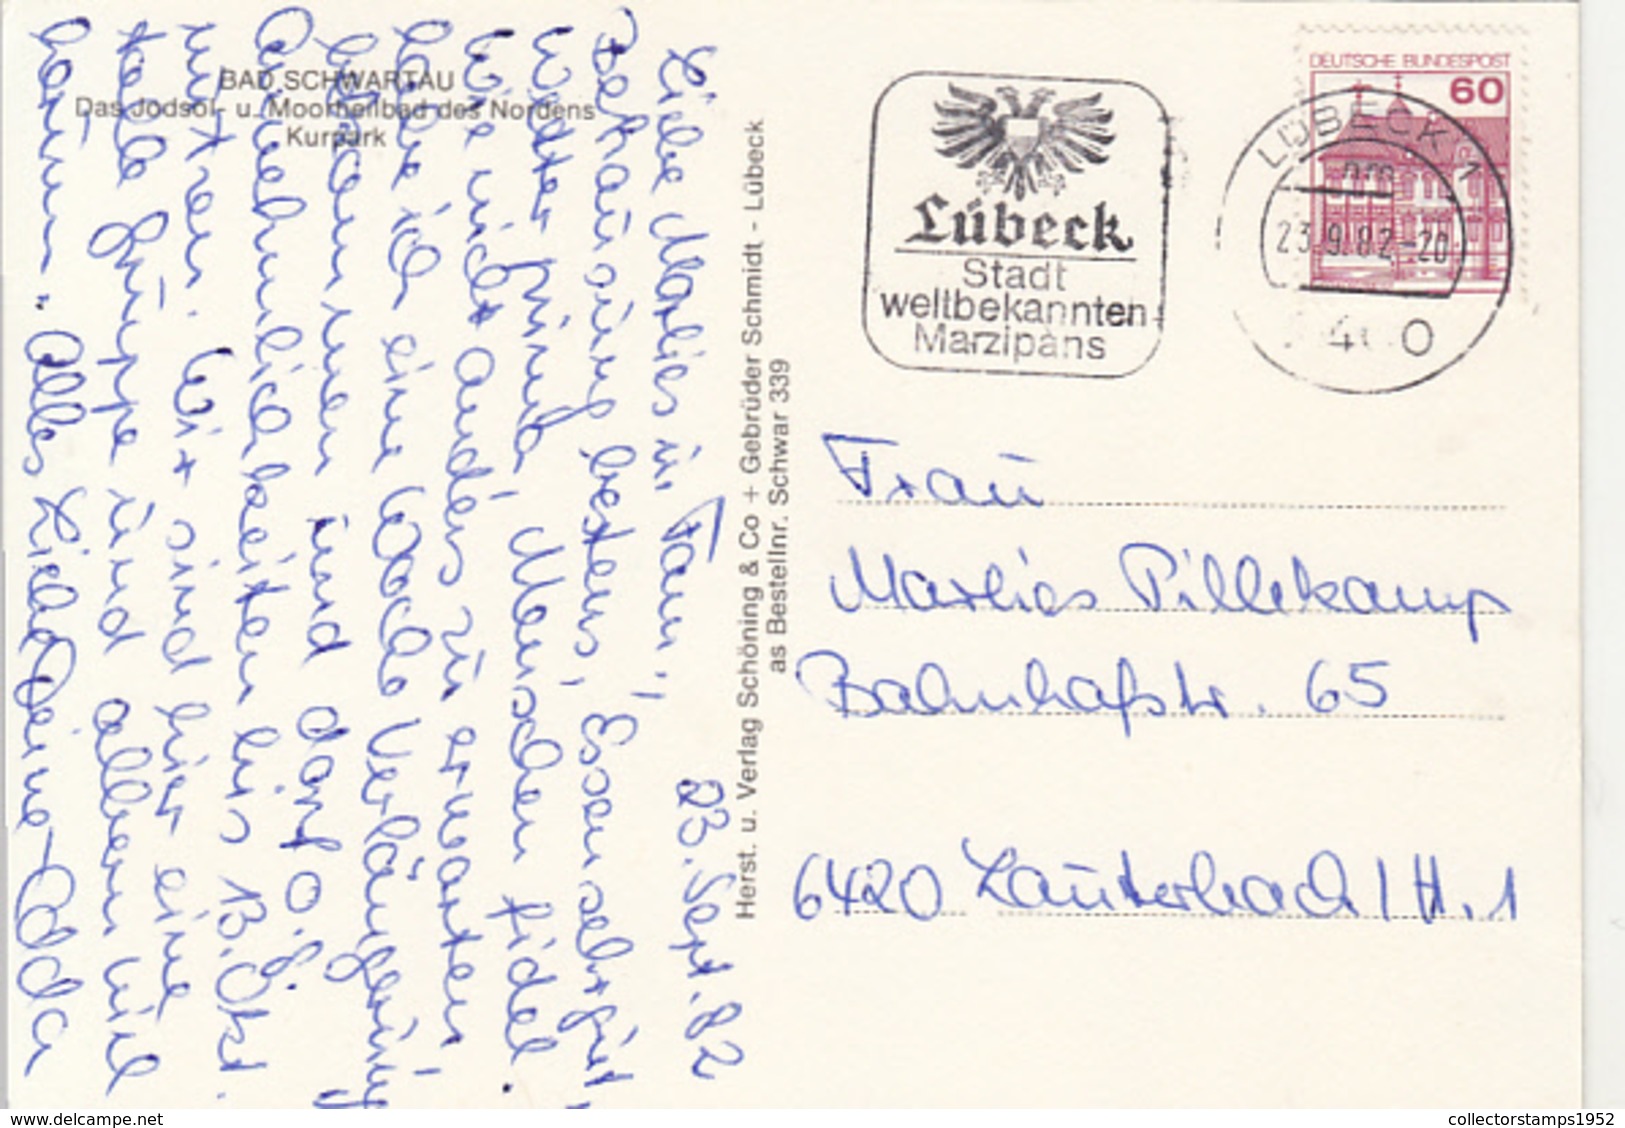 BAD SCHWARTAU
Das Jodsol- u. Moorheilbad des Nordens
Kurpark
23. Sept. 82
Liebe Marlies u. Fam.,
Behausung bestens, Essen sehr gut
Wetter prima, Menschen fidel.
Wie nicht anders zu erwarten
habe ich eine Woche Verlängerung
bekommen und darf o. g.
Annehmlichkeiten bis 13. Okt.
nutzen. Wir sind hier eine
tolle Gruppe und albern viel
herum. Alles Liebe Deine Edda
Herst. u. Verlag Schöning & Co + Gebrüder Schmidt - Lübeck
as Bestellnr. Schwar 339
Lübeck
Stadt
weltbekannten
Marzipans
DEUTSCHE BUNDESPOST
60
LÜBECK 1
23.9.82-20
Frau
Marlies Pillekamp
Bahnhofstr. 65
6420 Lauterbach / H. 1
www.delcampe.net
collectorstamps1952